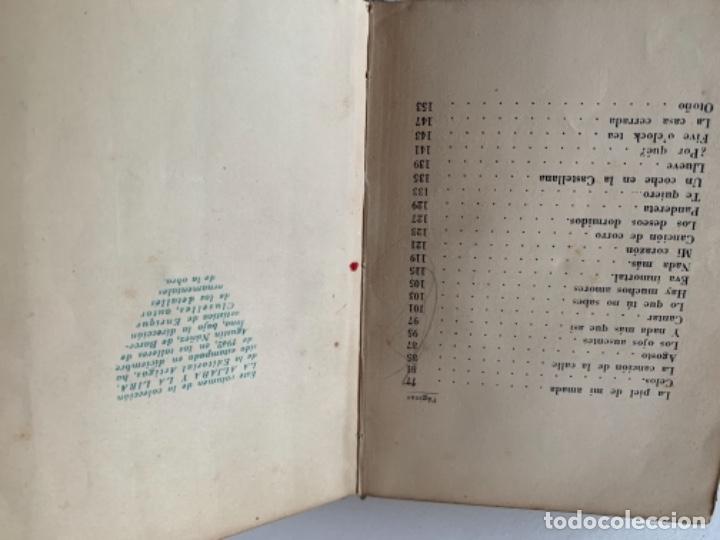 Páginas
La piel de mi amada . . . . . . 77
Celos. . . . . . . . . . . 81
La canción de la calle . . . . . . 85
Agosto . . . . . . . . . . 87
Los ojos ausentes . . . . . . . 95
Y nada más que así . . . . . . 97
Cantar . . . . . . . . . . 101
Lo que tú no sabes . . . . . . 103
Hay muchos amores . . . . . . 105
Eva inmortal. . . . . . . . . 115
Nada más. . . . . . . . . . 119
Mi corazón . . . . . . . . . 121
Canción de corro . . . . . . . 123
Los deseos dormidos. . . . . . . 127
Pandereta . . . . . . . . . 129
Te quiero... . . . . . . . . 133
Un coche en la Castellana . . . . . 135
Llueve . . . . . . . . . . 139
¿Por qué? . . . . . . . . . 141
Five o'clock tea . . . . . . . 143
La casa cerrada . . . . . . . 147
Otoño . . . . . . . . . . 153
Este volumen de la colección
LA ALJABA Y LA LIRA,
de la Editorial Artigas, ha
sido estampado en diciembre
de 1942, en los talleres de
Agustín Núñez, de Barce-
lona, bajo la dirección
artística de Enrique
Cluselles, autor
de los detalles
ornamentales
de la obra.
todocoleccion.net